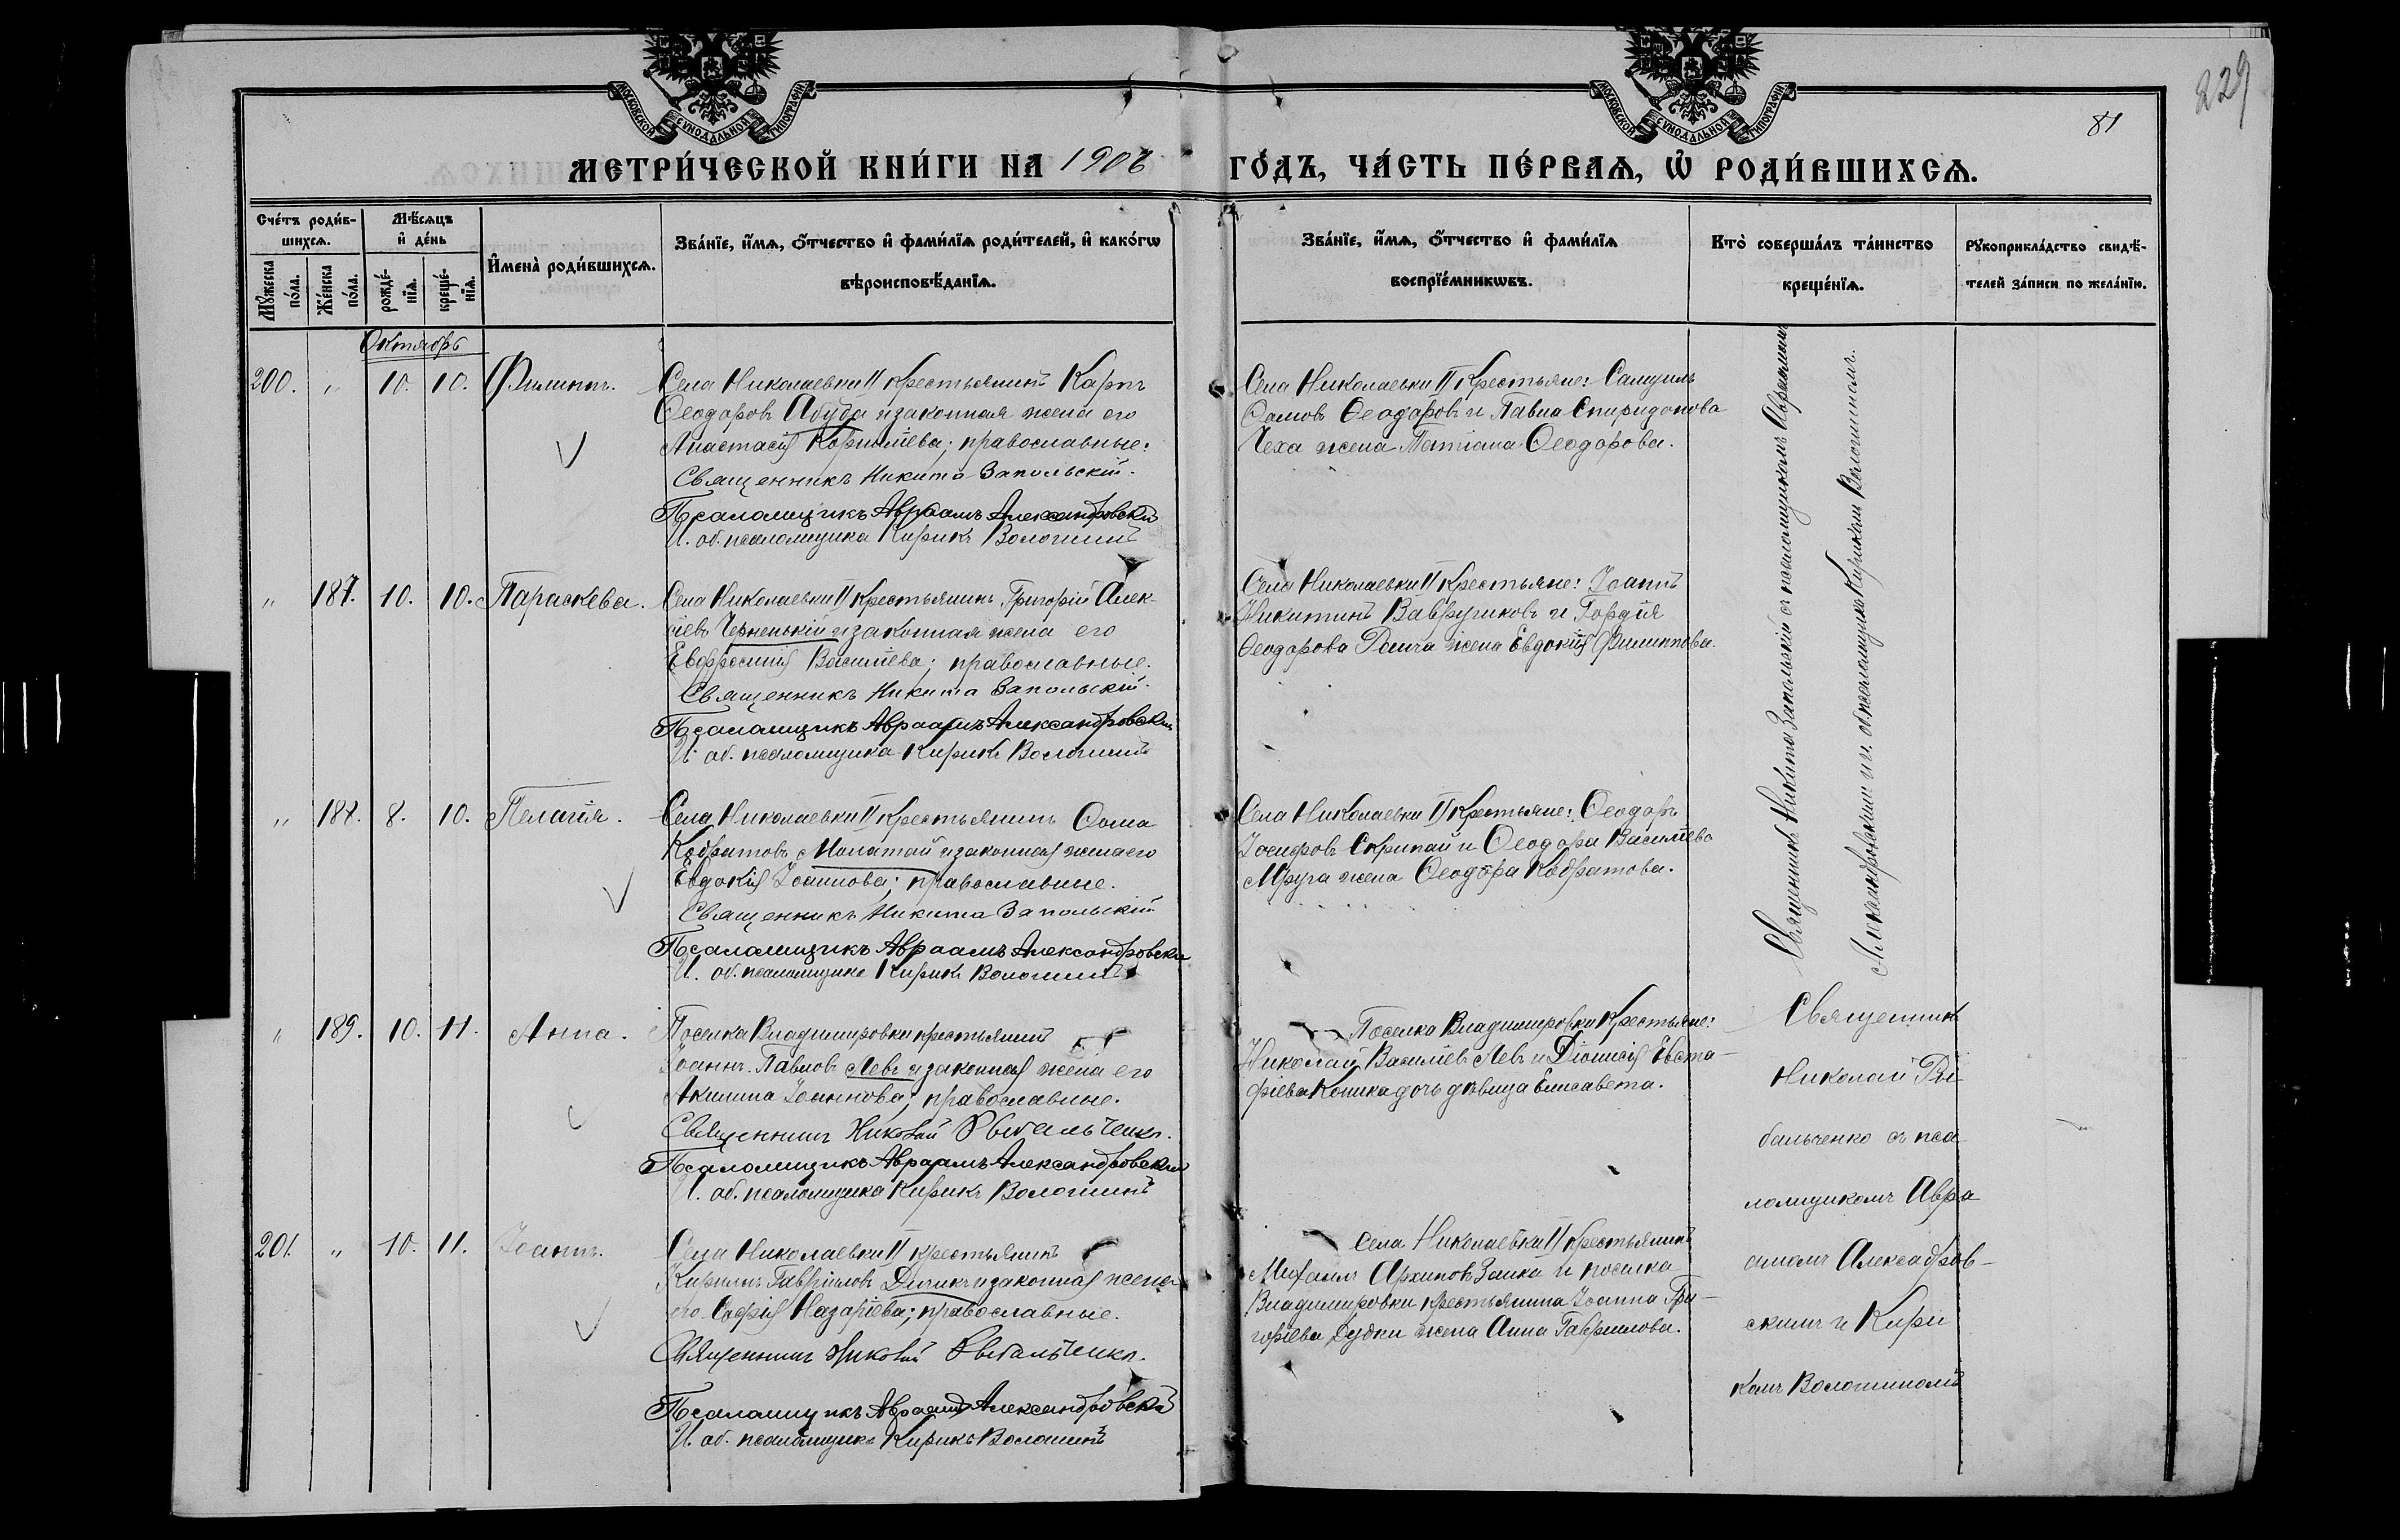 229
81
МОСКОВСКОЙ СѴНОДАЛЬНОЙ ТИПОГРАФІИ
МОСКОВСКОЙ СѴНОДАЛЬНОЙ ТИПОГРАФІИ
МЕТРИ́ЧЕСКОЙ КНИ́ГИ НА 1908 ГО́ДЪ, ЧА́СТЬ ПЕ́РВАѦ, Ѽ РОДИ́ВШИХСѦ.
Сче́тъ роди́в-
шихсѧ.
Мѣ́сѧцъ
и҆ де́нь
Мꙋ́жеска по́ла.
Же́нска по́ла.
рожде́-
нїѧ.
креще́-
нїѧ.
И҆мена̀ роди́вшихсѧ.
Зва́нїе, и҆́мѧ, ѻ҆́тчество и҆ фами́лїѧ роди́телей, и҆ како́гѡ
вѣроисповѣ́данїѧ.
Зва́нїе, и҆́мѧ, ѻ҆́тчество и҆ фами́лїѧ
воспрїе́мникѡвъ.
Кто̀ соверша́лъ та́инство
креще́нїѧ.
Рꙋкоприкла́дство свидѣ́-
телей за́писи по жела́нїю.
Октябрь
200. " 10. 10. Филиппъ.
Села Николаевки II крестьянинъ Карпъ
Ѳеодоровъ Абуба и законная жена его
Анастасія Корнилієва; православные:
Священникъ Никита Запольскій.
Псаломщикъ Авраамъ Александровскій
И. об. псаломщика Кирикъ Волошинъ
Села Николаевки II крестьяне: Самуилъ
Ѳомовъ Ѳеодоровъ и Павла Спиридонова
Чеха жена Татіана Ѳеодорова.
Священникъ Никита Запольскій съ псаломщикомъ Авраамомъ
Александровскимъ и и. об. псаломщика Кирикомъ Волошиномъ.
" 187. 10. 10. Параскева.
Села Николаевки II крестьянинъ Григорій Алек-
сіевъ Черненькій и законная жена его
Евфросинія Василіева; православные.
Священникъ Никита Запольскій.
Псаломщикъ Авраамъ Александровскій
И. об. псаломщика Кирикъ Волошинъ
Села Николаевки II крестьяне: Іоаннъ
Никитинъ Ваврушковъ и Гордія
Ѳеодорова жена Евдокія Филиппова.
" 188. 8. 10. Пелагія.
Села Николаевки II крестьянинъ Ѳома
Кодратовъ Малатай и законная жена его
Евдокія Іоаннова; православные.
Священникъ Никита Запольскій
Псаломщикъ Авраамъ Александровскій
И. об. псаломщика Кирикъ Волошинъ
Села Николаевки II крестьяне: Ѳеодоръ
Іосифовъ Скрипай и Ѳеодора Василіева
Мруга жена Ѳеодора Кодратова.
" 189. 10. 11. Анна.
Поселка Владимировки крестьянинъ
Іоаннъ Павловъ Левъ и законная жена его
Акилина Іоаннова; православные.
Священникъ Николай Рыбальченко.
Псаломщикъ Авраамъ Александровскій
И. об. псаломщика Кирикъ Волошинъ
Поселка Владимировки крестьяне:
Николай Василіевъ Левъ и Діонисія Евста-
фіева Коника дочь дѣвица Елисавета.
Священникъ
Николай Ры-
бальченко съ пса-
ломщикомъ Авра
амомъ Алексадров-
скимъ и Кири
комъ Волошиномъ
201. " 10. 11. Іоаннъ.
Села Николаевки II крестьянинъ
Кириллъ Гавріиловъ Дешкъ и законная жена
его Софія Назаріева; православные.
Священникъ Николай Рыбальченко.
Псаломщикъ Авраамъ Александровскій
И. об. псаломщика Кирикъ Волошинъ
Села Николаевки II крестьянинъ
Михаилъ Архиповъ Заика и поселка
Владимировки крестьянина Іоанна Гри-
горіева Дудки жена Анна Гавриилова.